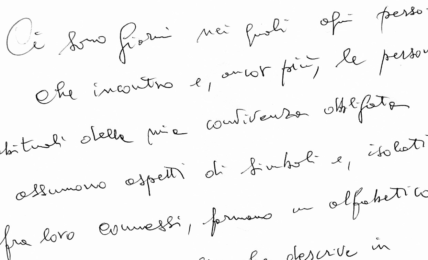 Ci sono giorni nei quali ogni perso
che incontro e, ancor più, le person
bituali della mia convivenza obbligata
assumono aspetti di simboli e, isolati
fra loro connessi, formano un alfabetico
descrive in